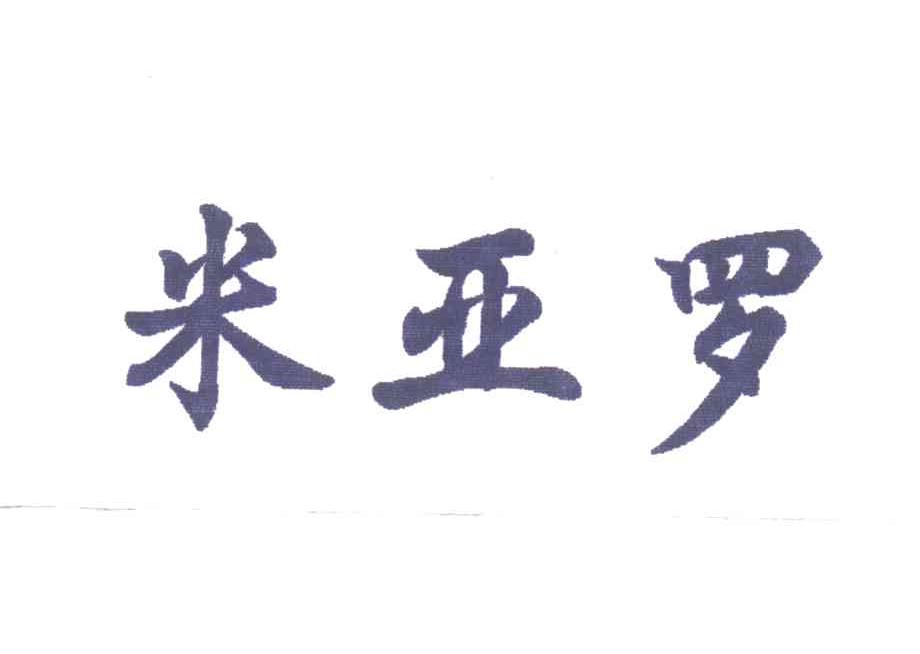 米亚罗